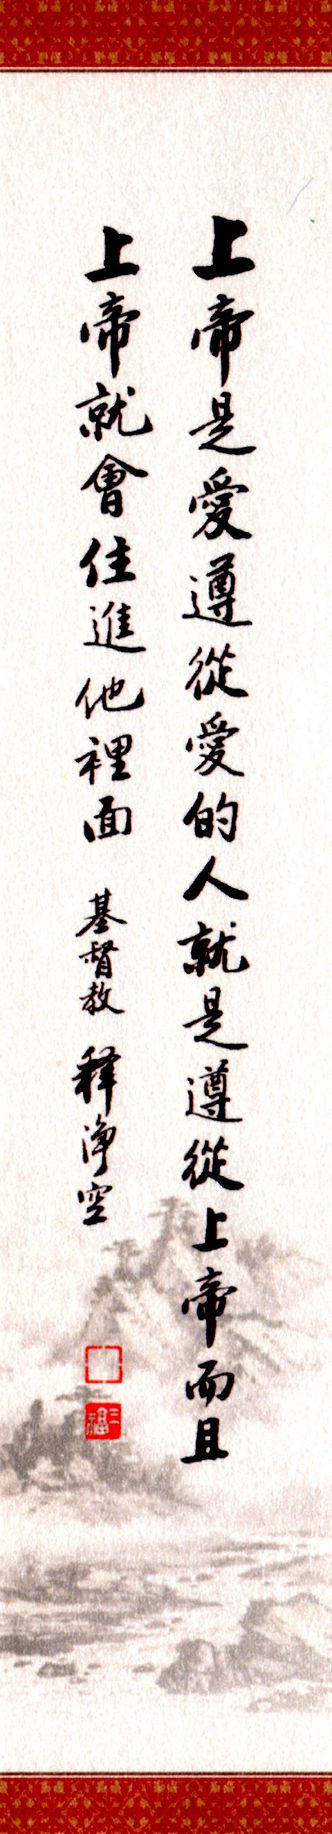 上帝是愛遵從愛的人就是遵從上帝而且
上帝就會住進他裡面 基督教 釋淨空